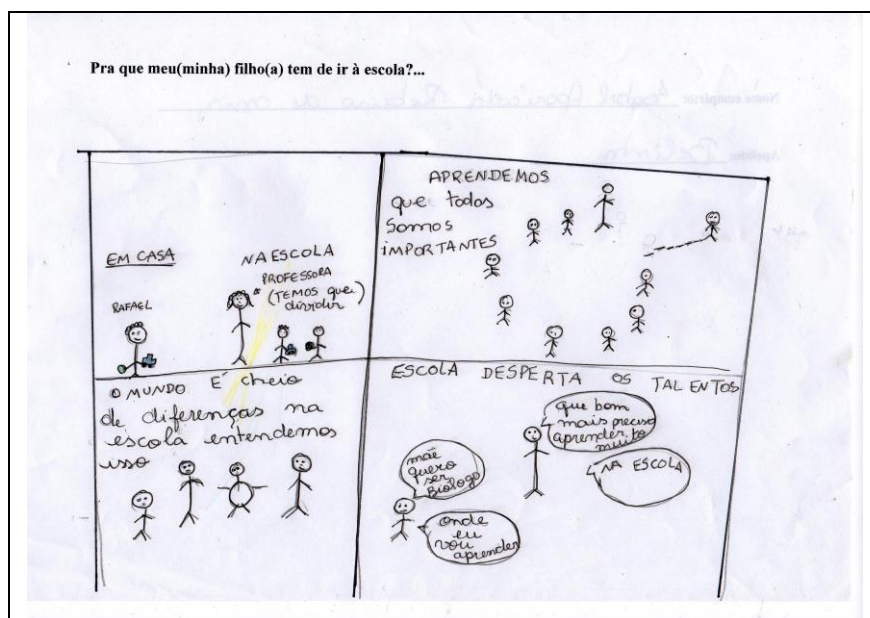 Pra que meu(minha) filho(a) tem de ir à escola?...
EM CASA
RAFAEL
NA ESCOLA
PROFESSORA
(TEMOS que)
dividir
APRENDEMOS
que todos
somos
IMPORTANTES
O MUNDO É cheio
de diferenças na
escola entendemos
isso
ESCOLA DESPERTA OS TALENTOS
mãe
quero
ser
BIÓLOGO
onde
eu
vou
aprender
que bom
mais preciso
aprender
muito
NA ESCOLA